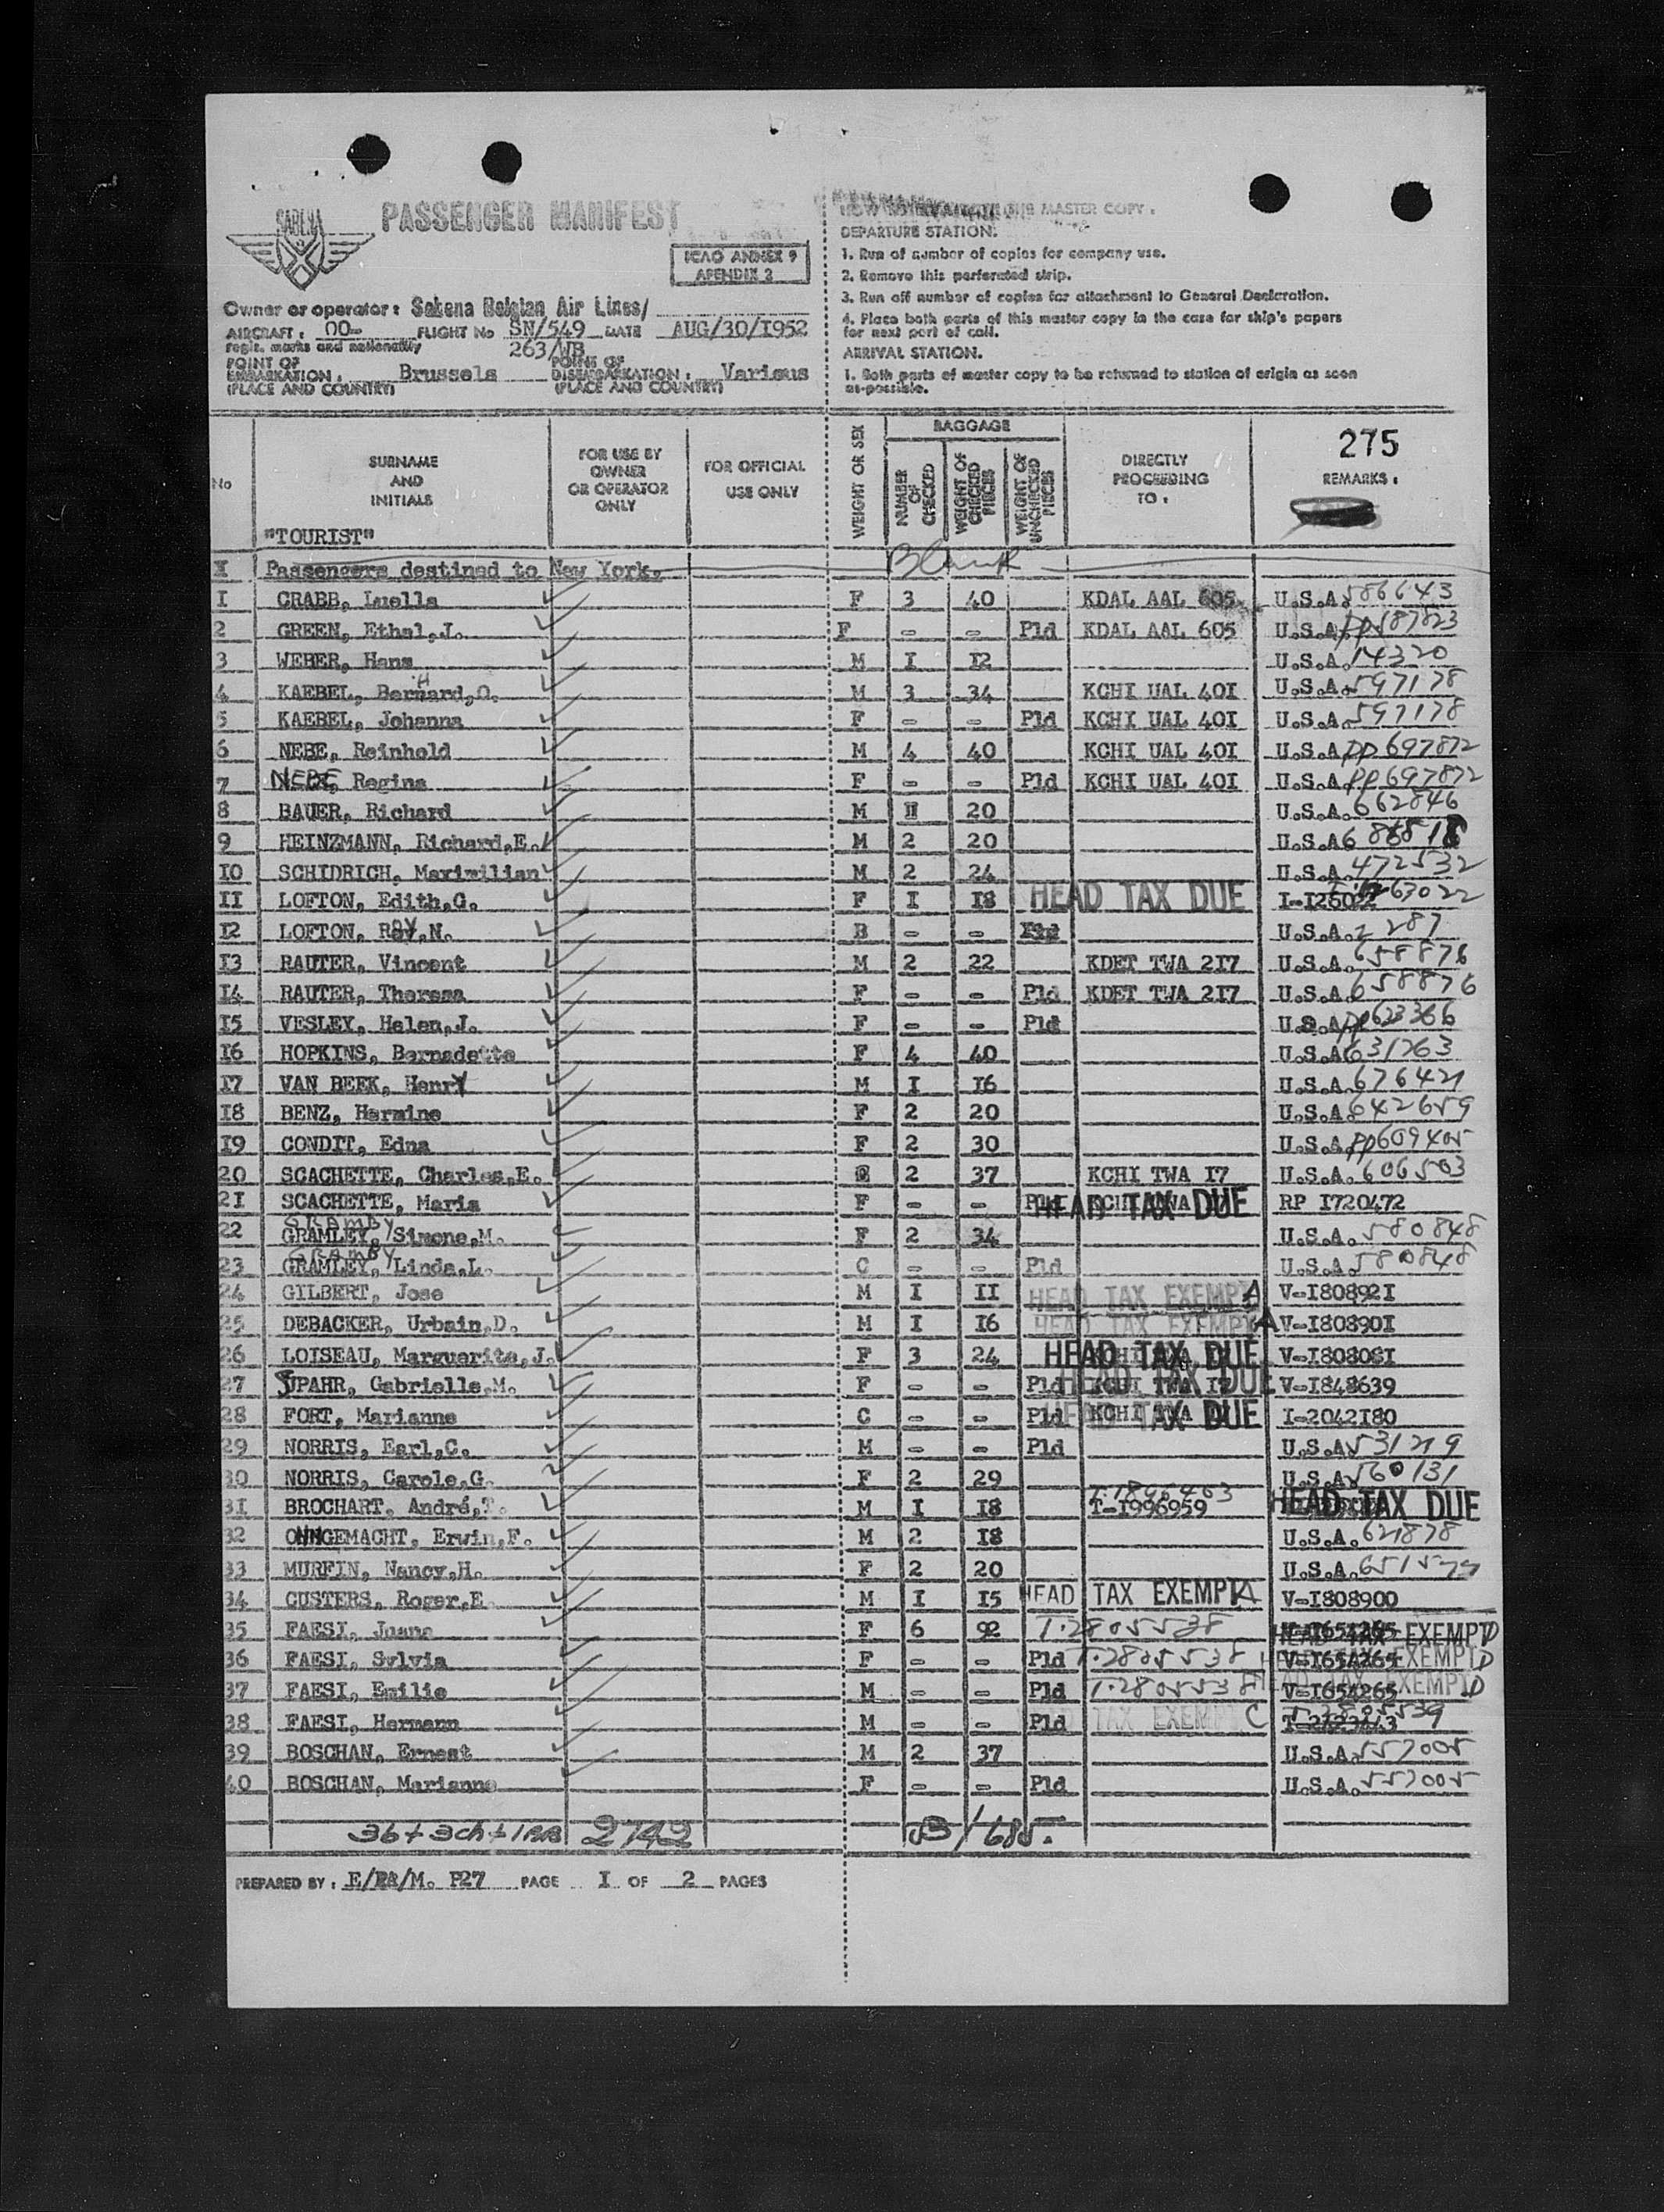 SABENA
PASSENGER MANIFEST
ICAO ANNEX 9
APENDIX 2
Owner or operator : Sabena Belgian Air Lines/
AIRCRAFT : OO- FLIGHT No SN/549 DATE AUG/30/I952
regist. marks and nationality 263/WB
POINT OF EMBARKATION : Brussels POINT OF DISEMBARKATION : Various
(PLACE AND COUNTRY) (PLACE AND COUNTRY)
MASTER COPY.
DEPARTURE STATION:
1. Run of number of copies for company use.
2. Remove this perforated strip.
3. Run off number of copies for attachment to General Declaration.
4. Place both parts of this master copy in the case for ship's papers
for next port of call.
ARRIVAL STATION.
1. Both parts of master copy to be returned to station of origin as soon
as-possible.
No
SURNAME AND INITIALS
"TOURIST"
FOR USE BY OWNER OR OPERATOR ONLY
FOR OFFICIAL USE ONLY
WEIGHT OR SEX
BAGGAGE
NUMBER OF CHECKED
WEIGHT OF CHECKED PIECES
WEIGHT OF UNCHECKED PIECES
DIRECTLY PROCEEDING TO :
275
REMARKS :
X Passengers destined to New York. Blank
I CRABB, Luella F 3 40 KDAL AAL 605 U.S.A. 586643
2 GREEN, Ethel,J. F - - Pld KDAL AAL 605 U.S.A. pp587823
3 WEBER, Hans M I I2 U.S.A. 14320
4 KAEBEL, Bernhard,O. M 3 34 KCHI UAL 40I U.S.A. 597178
5 KAEBEL, Johanna F - - Pld KCHI UAL 40I U.S.A. 597178
6 NEBE, Reinhold M 4 40 KCHI UAL 40I U.S.A. pp 697872
7 NEBE, Regina F - - Pld KCHI UAL 40I U.S.A. pp 697872
8 BAUER, Richard M 20 U.S.A. 662846
9 HEINZMANN, Richard,E. M 2 20 U.S.A.
IO SCHIDRICH, Maximilian M 2 24 U.S.A. 472532
II LOFTON, Edith,G. F I I8 HEAD TAX DUE 63022
I2 LOFTON, Roy,N. B - - U.S.A. 287
I3 RAUTER, Vincent M 2 22 KDET TWA 2I7 U.S.A. 658876
I4 RAUTER, Theresa F - - Pld KDET TWA 2I7 U.S.A. 658876
I5 VESLEY, Helen,J. F - - Pld U.S.A. pp623366
I6 HOPKINS, Bernadette F 4 40 U.S.A. 631263
I7 VAN BEEK, Henry M I I6 U.S.A. 676421
I8 BENZ, Hermine F 2 20 U.S.A. 642659
I9 CONDIT, Edna F 2 30 U.S.A. pp609405
20 SCACHETTE, Charles,E. 2 37 KCHI TWA I7 U.S.A. 606503
2I SCACHETTE, Maria F - - Pld KCHI TWA HEAD TAX DUE RP I720472
GRAMBY
22 GRAMLEY, Simone,M. F 2 34 U.S.A. 580848
GRAMBY
23 GRAMLEY, Linda,L. C - - Pld U.S.A. 580848
24 GILBERT, Jose M I II HEAD TAX EXEMPT A V-I80892I
25 DEBACKER, Urbain,D. M I I6 HEAD TAX EXEMPT A V-I80890I
26 LOISEAU, Marguerite,J. F 3 24 HEAD TAX DUE V-I80808I
27 SPAHR, Gabrielle,M. F - - Pld KCHI TWA I7 HEAD TAX DUE V-I848639
28 FORT, Marianne C - - Pld KCHI TWA HEAD TAX DUE I-2042I80
29 NORRIS, Earl,C. M - - Pld U.S.A. 531219
30 NORRIS, Carole,G. F 2 29 U.S.A. 560131
3I BROCHART, André,T. M I I8 T-1896463 T-I996959 HEAD TAX DUE
32 OHNGEMACHT, Erwin,F. M 2 I8 U.S.A. 621878
33 MURFIN, Nancy,H. F 2 20 U.S.A.
34 CUSTERS, Roger,E. M I I5 HEAD TAX EXEMPT A V-I808900
35 FAESI, Juana F 6 92 T-2805538 V-I654265 HEAD TAX EXEMPT D
36 FAESI, Sylvia F - - Pld T-2805538 V-I654265 HEAD TAX EXEMPT D
37 FAESI, Emilie M - - Pld T-2805538 V-I654265 HEAD TAX EXEMPT D
38 FAESI, Hermann M - - Pld HEAD TAX EXEMPT C
39 BOSCHAN, Ernest M 2 37 U.S.A. 557005
40 BOSCHAN, Marianne F - - Pld U.S.A. 557005
36 + 3ch + 1BB 2742 53/685.
PREPARED BY : E/RA/M. P27 PAGE I OF 2 PAGES